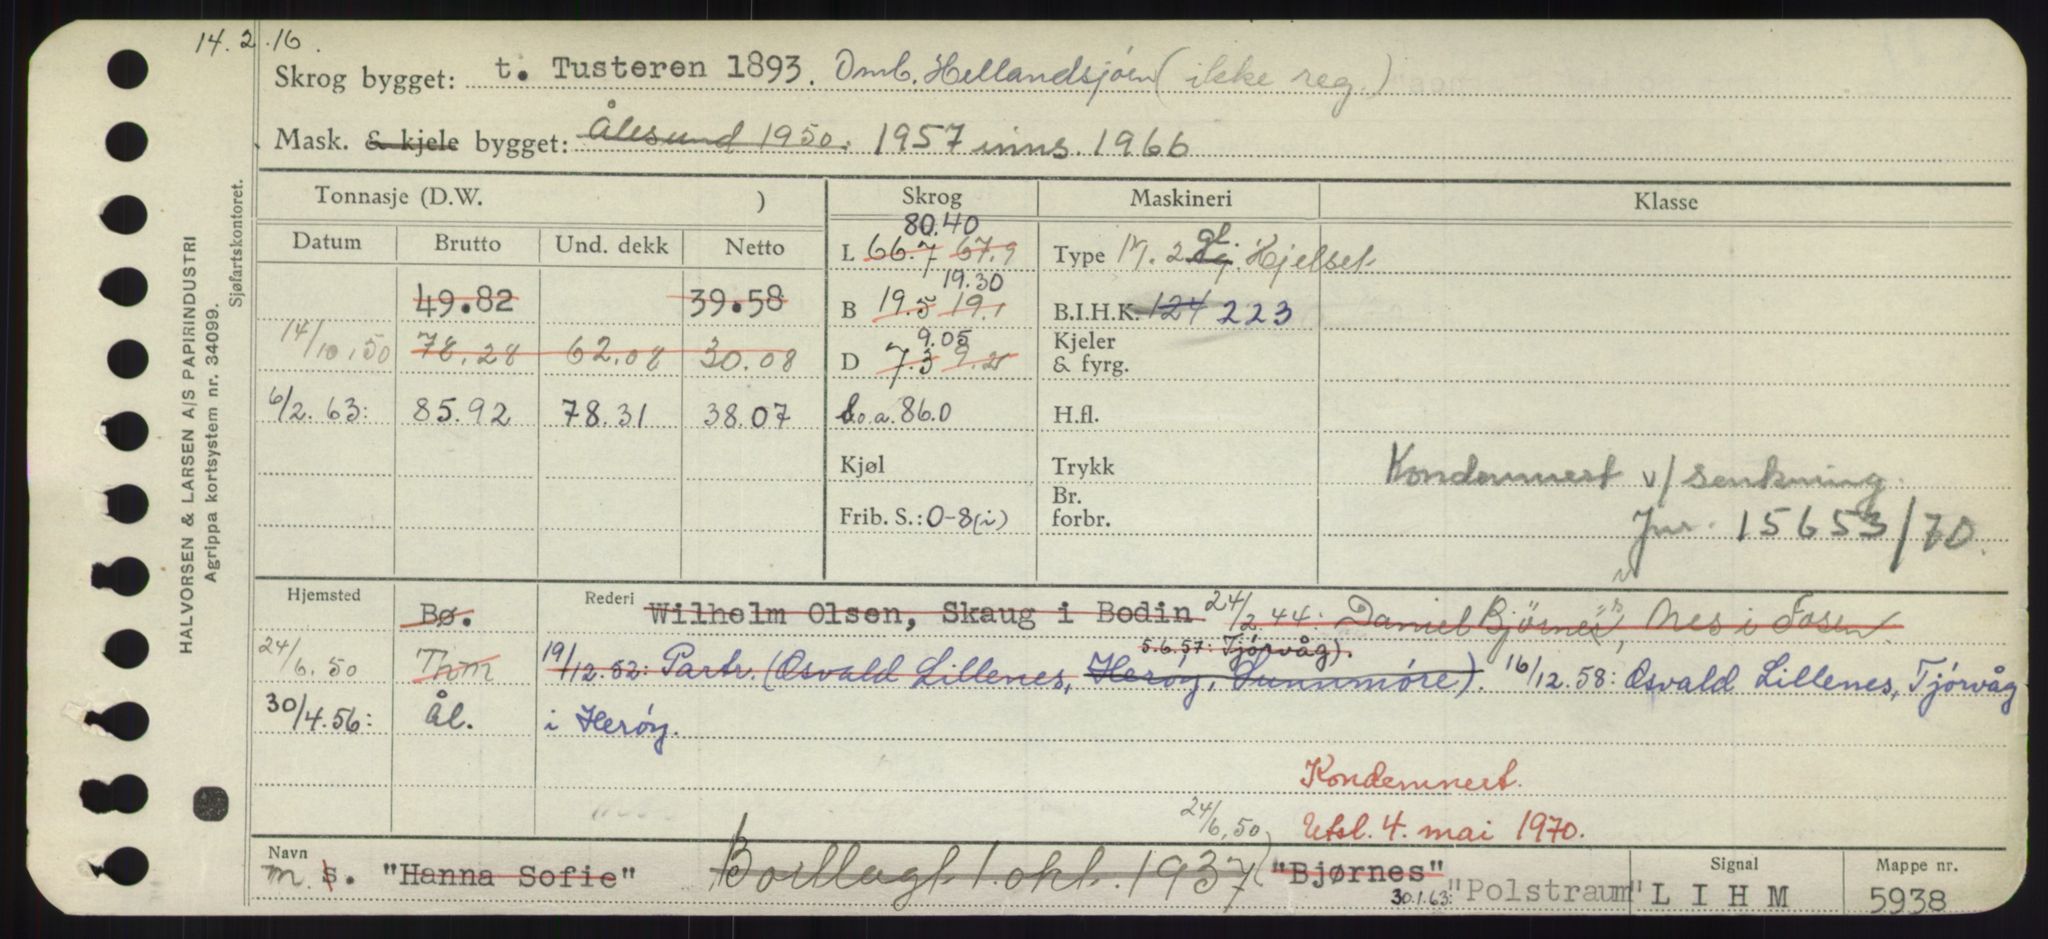 14.2.16.
Skrog bygget: t. Tusteren 1893. Omb. Hellandsjøen (ikke reg.)
Mask. & kjele bygget: Ålesund 1950. 1957 inns. 1966
HALVORSEN & LARSEN A/S PAPIRINDUSTRI
Agrippa kortsystem nr. 34099.
Sjøfartskontoret.
Tonnasje (D.W. ) Skrog Maskineri Klasse
Datum Brutto Und. dekk Netto
80.40
L 66.7 67.9 Type M. 2 gl. Hjelset
19.30
49.82 39.58 B 19.5 19.1 B.I.H.K. 124 223
9.05
14/10.50 78.28 62.08 30.08 D 7.3 9.25 Kjeler & fyrg.
6/2.63: 85.92 78.31 38.07 L.o.a. 86.0 H.fl.
Kjøl Trykk Kondemnert v/ senkning
Frib. S.: 0-8(i) Br. forbr. Jnr. 15653/70.
Hjemsted Bø. Rederi Wilhelm Olsen, Skaug i Bodin 24/2 44: Daniel Bjørnes, Nes i Fosen.
5.6.57: Tjørvåg).
24/6.50 Thm 19/12.52: Partr. (Osvald Lillenes, Herøy, Sunnmøre). 16/12.58: Osvald Lillenes, Tjørvåg
30/4.56: Ål. i Herøy.
Kondemnert.
24/6.50 Utsl. 4. mai 1970.
Navn m. s. "Hanna Sofie" Bortlagt 1. okt. 1937 "Bjørnes" Signal Mappe nr.
30.1.63: "Polstraum" L I H M 5938